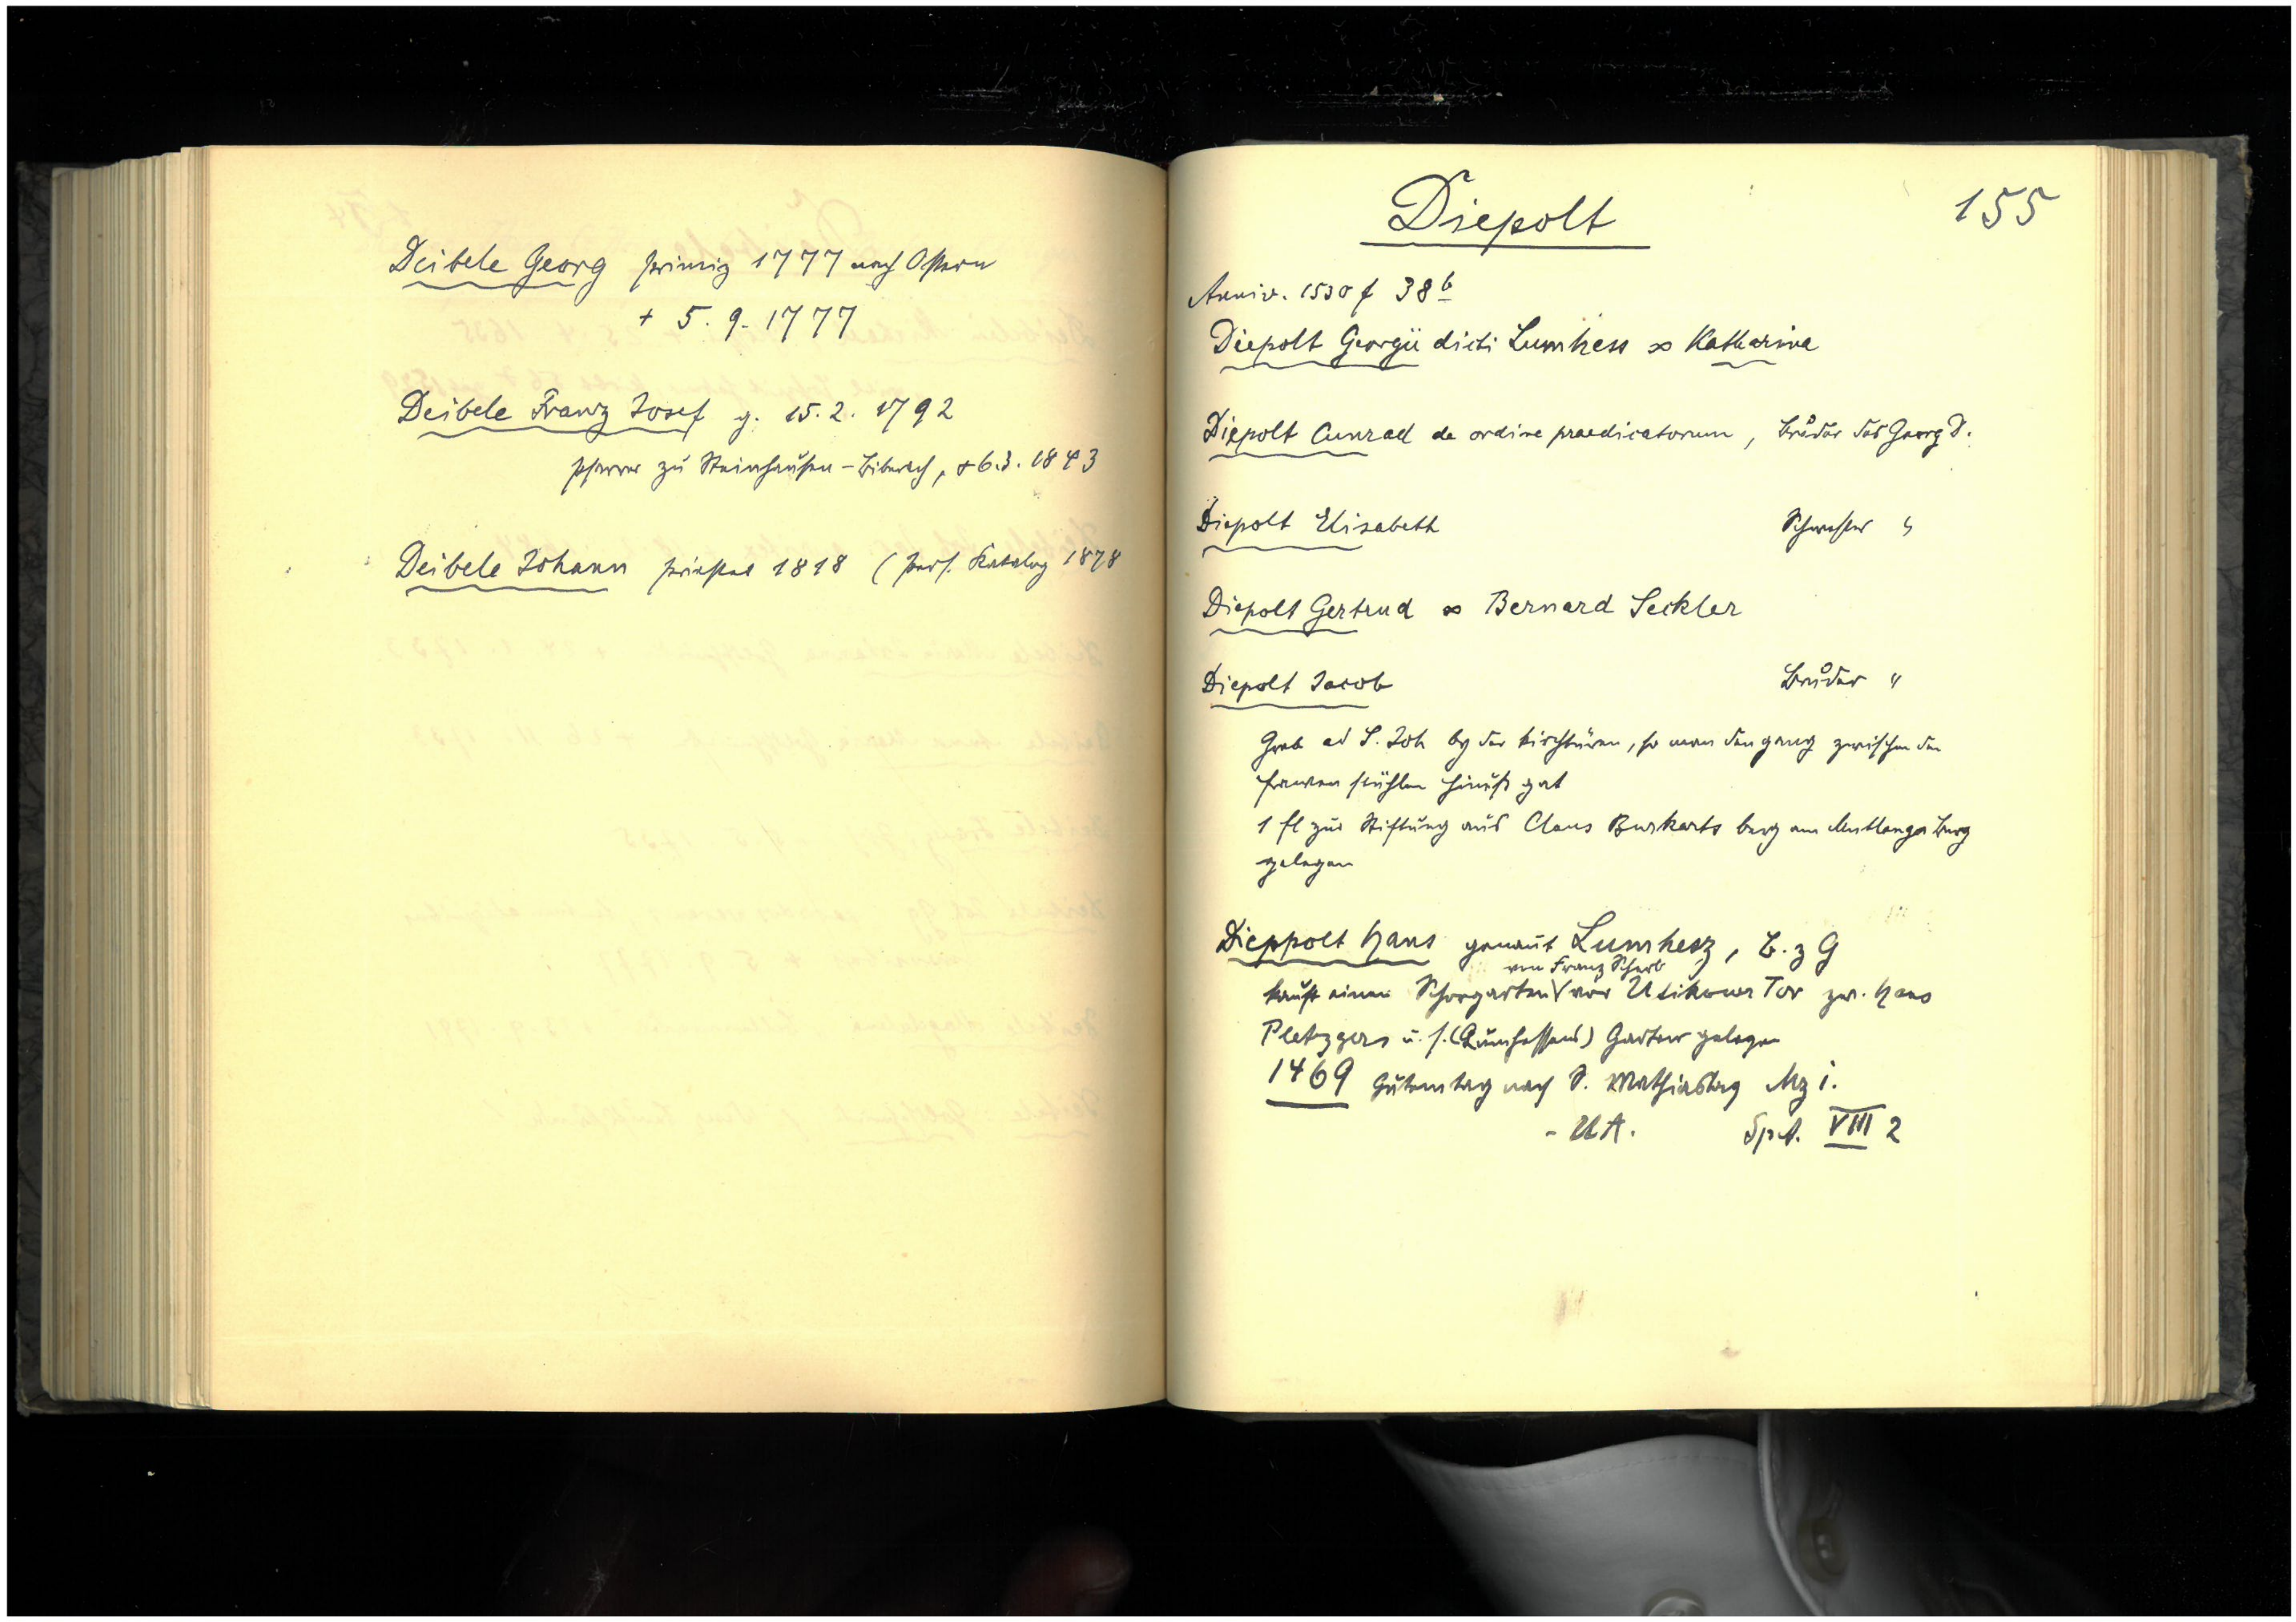 Deibele Georg primiz 1777 nach Ostern
+ 5. 9. 1777
Deibele Franz Josef g. 15. 2. 1792
pfarrer zu Steinhausen-Biberach, + 6. 3. 1843
Deibele Johann priester 1818 (pers. Katalog 1878
Diepolt
155
Anniv. 1530 f 38 b
Diepolt Georgii dicti Lumhess ∞ Katharina
Diepolt Cunrad de ordine praedicatorum, Bruder des Georg D.
Diepolt Elisabeth Schwester "
Diepolt Gertrud ∞ Bernard Seckler
Diepolt Jacob Bruder "
Grab ad S. Joh by der kirchtüren, so man den gang zwischen den
frawen stühlen hinuß gat
1 fl zur Stiftung aus Claus Burkarts berg am Mutlanger Berg
gelegen
Dieppolt Hans genannt Lumhesz, B. z G
von Franz Scherb
kauft einen Schorgarten vor Utikower Tor zw. Hans
Pletzgers u. s. (Lumhessens) Garten gelegen
1469 Gutemtag nach S. Mathiastag Mz i.
- UA. SpA. VIII 2